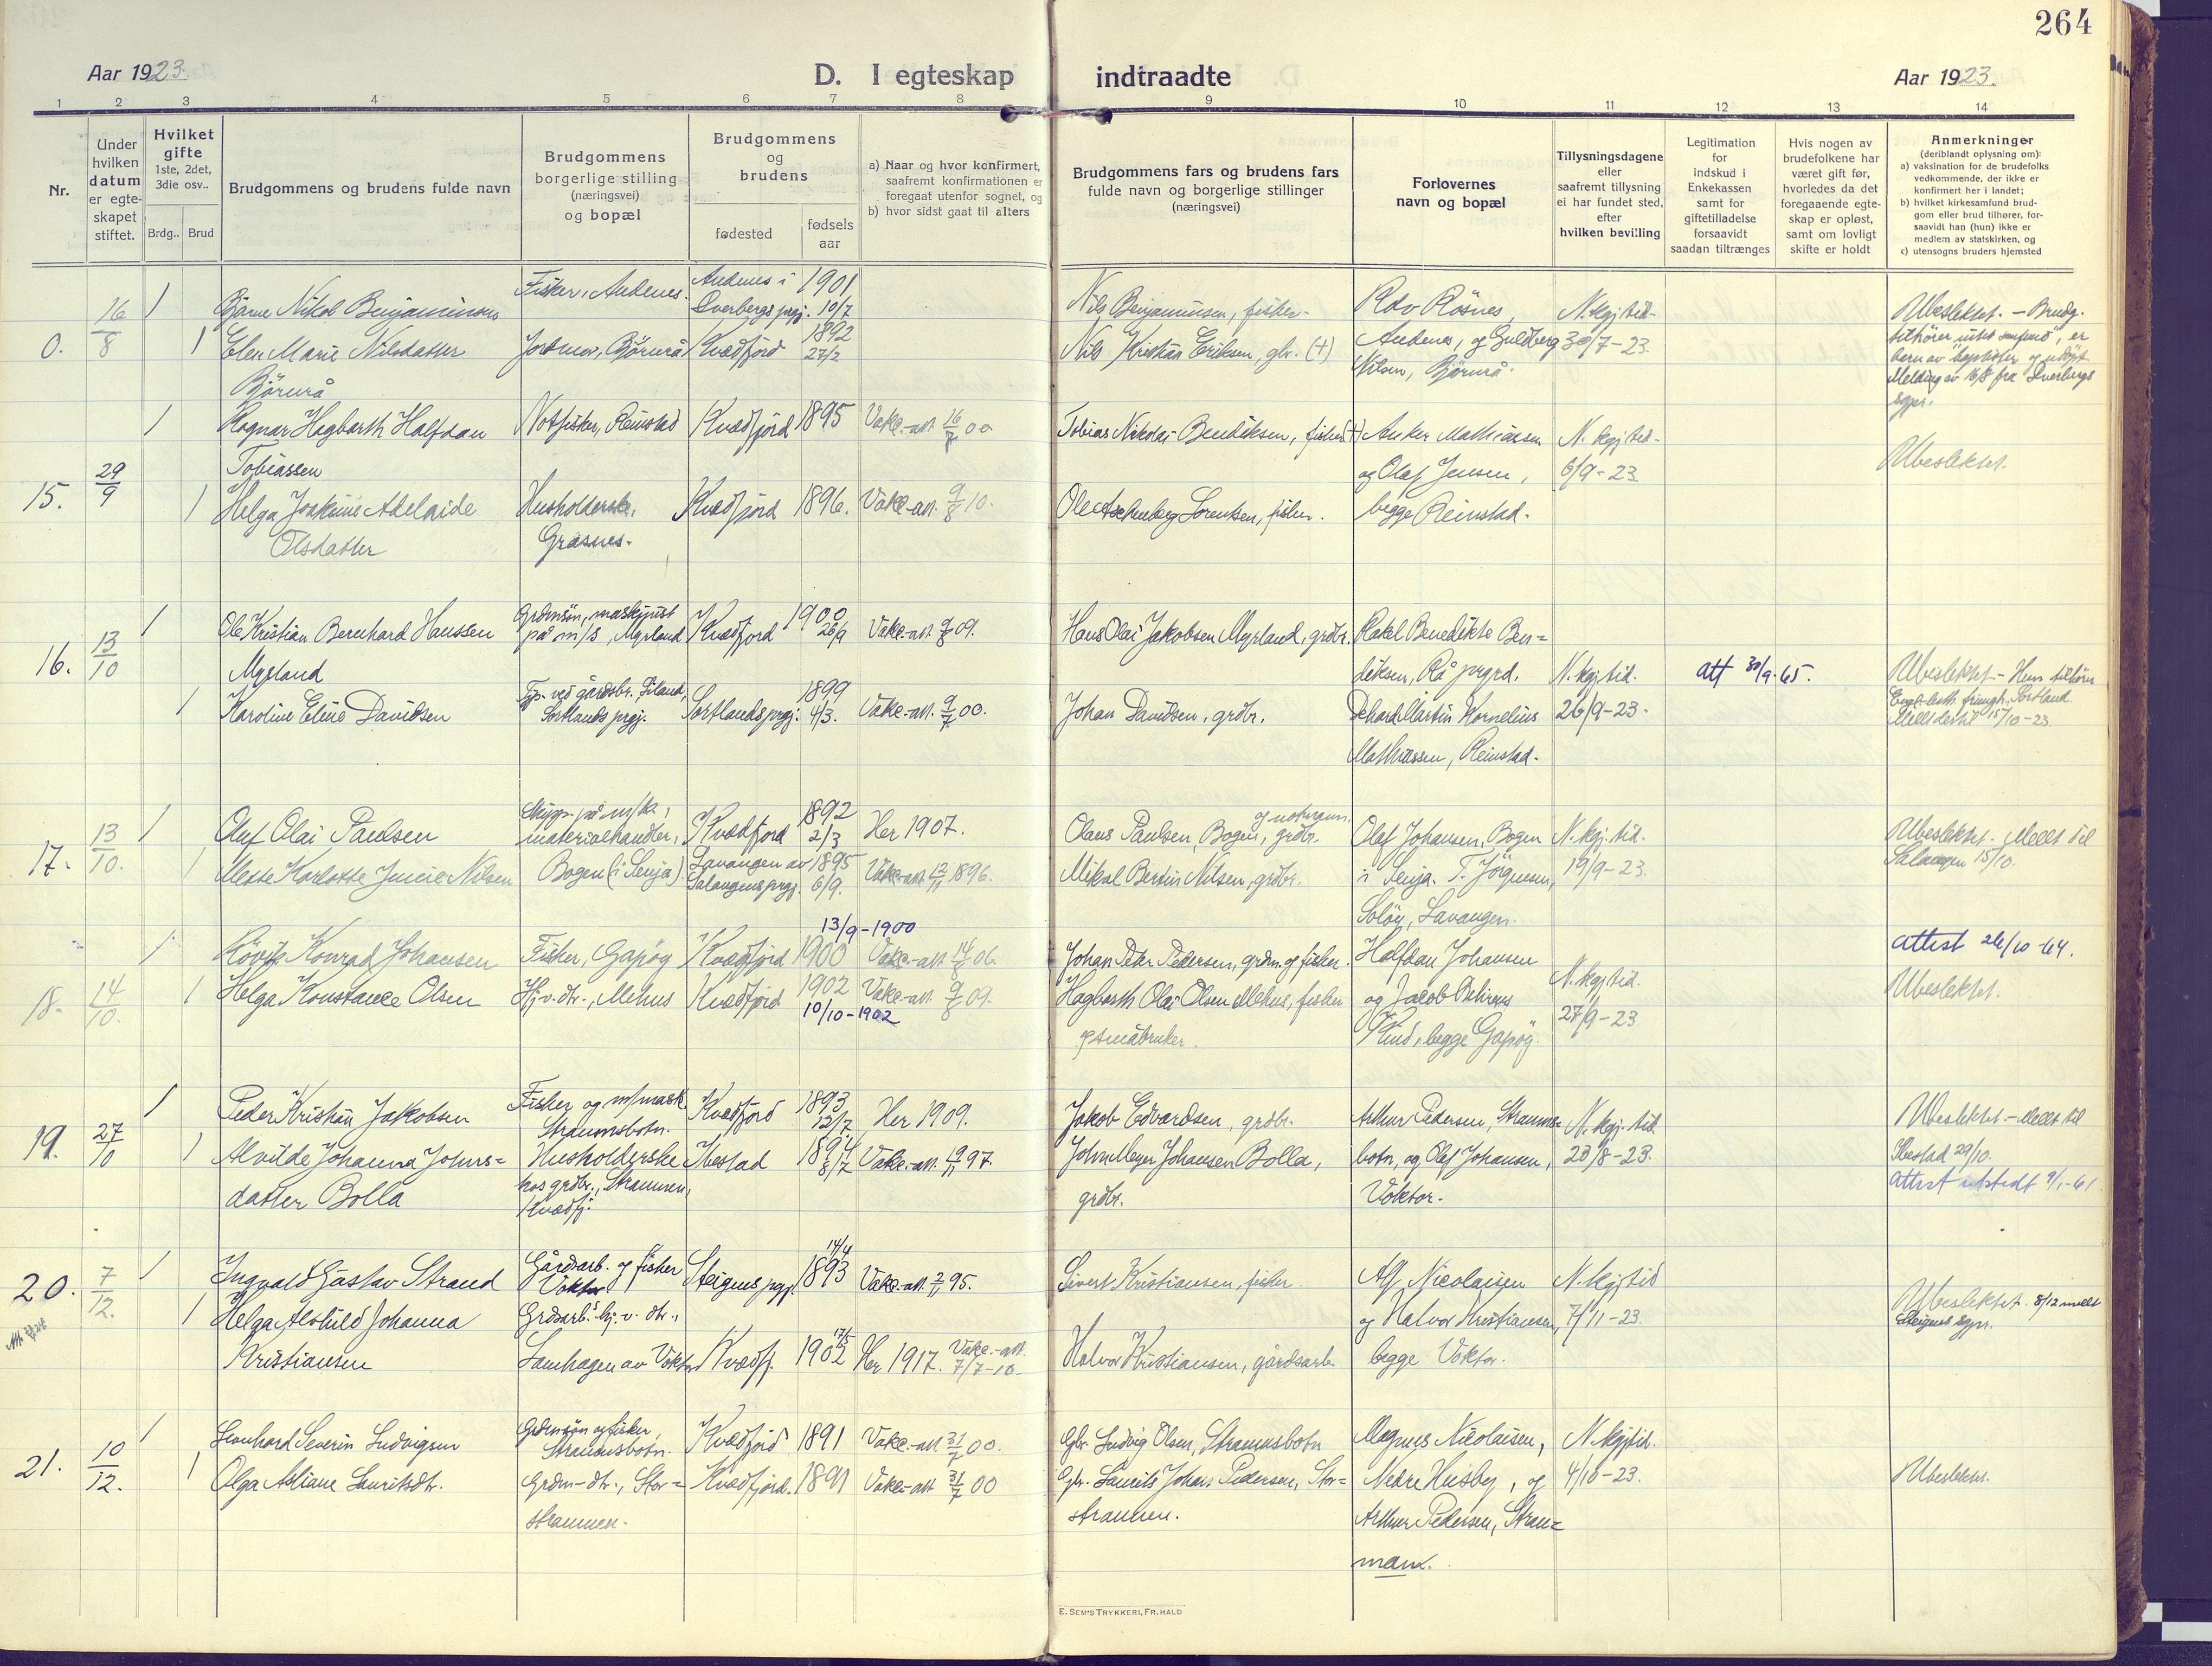 264
Aar 1923.
D. I egteskap indtraadte
Aar 1923.
1 2 3 4 5 6 7 8 9 10 11 12 13 14
Nr.
Under hvilken datum er egte-skapet stiftet.
Hvilket gifte 1ste, 2det, 3die osv..
Brdg.. Brud
Brudgommens og brudens fulde navn
Brudgommens borgerlige stilling (næringsvei) og bopæl
Brudgommens og brudens
fødested
fødsels aar
a) Naar og hvor konfirmert, saafremt konfirmationen er foregaat utenfor sognet, og
b) hvor sidst gaat til alters
Brudgommens fars og brudens fars fulde navn og borgerlige stillinger (næringsvei)
Forlovernes navn og bopæl
Tillysningsdagene eller saafremt tillysning ei har fundet sted, efter hvilken bevilling
Legitimation for indskud i Enkekassen samt for giftetilladelse forsaavidt saadan tiltrænges
Hvis nogen av brudefolkene har været gift før, hvorledes da det foregaaende egte-skap er opløst, samt om lovligt skifte er holdt
Anmerkninger
(deriblandt oplysning om):
a) vaksination for de brudefolks vedkommende, der ikke er konfirmert her i landet;
b) hvilket kirkesamfund brud-gom eller brud tilhører, for-saavidt han (hun) ikke er medlem av statskirken, og
c) utensogns bruders hjemsted
0. 16/8
1 Bjarne Nikol Benjaminsen
Fisker, Andenes.
Andenes i Dverbergs prgj. 1901 10/7
Nils Benjaminsen, fisker.
1 Elen Marie Nilsdatter
Bjørnrå
Jordmor, Bjørnrå
Kvædfjord 1892 27/2
Nils Kristian Eriksen, gbr. (+)
Røsnes, Andenes, og Guldberg Nilsen, Bjørnrå.
N. kgj. tid. 30/7-23.
Ubeslektet. - Brudg.
Melding av 16/8 fra Dverbergs sgpr.
15. 29/9
1 Ragnar Hagbarth Halfdan
Tobiassen
Notfisker, Reinstad
Kvædfjord 1895 Vakc.-att. 16/7 00
Tobias Nikolai Bendiksen, fisker (+)
Anker Mathiassen
og Olaf Jensen,
begge Reinstad.
N. kgj. tid.
6/9-23.
Ubeslektet.
1 Helga Joakime Adelaide
Olsdatter
Husholderske,
Grasnes.
Kvædfjord 1896. Vakc.-att. 9/8 10.
Sorensen, fisker.
16. 13/10
1 Ole Kristian Bernhard Hanssen
Myrland
Grdmsøn, maskinist
på m/s, Myrland
Kvædfjord 1900 26/9 Vakc.-att. 9/8 09.
Hans Olai Jakobsen Myrland, grdbr.
Rakel Benedikte Ben=
diksen, Rå prgrd.
Dehard Martin Kornelius
Mathiassen, Reinstad.
N. kgj. tid.
26/9-23.
att 30/9-65.
Ubeslektet. - Hun tilhører
frimgh. Sortland.
Meldt dertil 15/10-23.
1 Karoline Eline Davidsen
Sortlands prgj.
Sortlands prgj. 1899 4/3. Vakc.-att. 9/7 00.
Johan Davidsen, grdbr.
17. 13/10.
1 Oluf Olai Paulsen
materialhandler,
Bogen (i Senja).
Kvædfjord 1892 2/3 Her 1907.
Olaus Paulsen, Bogen, grdbr.
Olaf Johansen, Bogen
i Senja. T. Jörgensen,
Solöy, Lavangen.
N. kgj. tid.
19/9-23.
Ubeslektet. Meldt til
Salangen 15/10.
1 Mette Karlotte Junie Nilsen
Lavangen av Salangens prgj. 1895 6/9. Vakc.-att. 12/11 1896.
Mikal Bertin Nilsen, grdbr.
18. 14/10.
13/9-1900
1 Rövik Konrad Johansen
Fisker, Gapøy
Kvædfjord 1900 Vakc.-att. 14/8 06.
Johan Peter Pedersen, grdm. og fisker.
Halfdan Johansen
og Jacob Behrens
Rind, begge Gapøy.
N. kgj. tid.
27/9-23.
attest 26/10-64.
Ubeslektet.
1 Helga Konstance Olsen
Hj.v.dtr., Mehus
Kvædfjord 1902 Vakc.-att. 9/8 09.
10/10-1902
Hagbarth Olai Olsen Mehus, fisker
og småbruker.
19. 27/10
1 Peder Kristian Jakobsen
Fisker og m/mask.
Straumsbotn.
Kvædfjord 1893 12/7 Her 1909.
Jakob Edvardsen, grdbr.
Arthur Pedersen, Straums=
botn, og Olaf Johansen,
Voktor.
N. kgj. tid.
28/8-23.
Ubeslektet. - Meldt til
Ibestad 29/10.
Attest utstedt 9/1-61
1 Alvilde Johanna Johns=
datter Bolla
Husholderske
hos grdbr., Straumen,
Kvædfj.
Ibestad 1894 8/7 Vakc.-att. 19/11 97.
John Meyer Johansen Bolla,
grdbr.
20. 7/12.
1 Ingvald Gustav Strand
Gårdsarb. og fisker
Voktor
Steigens prgj. 14/4 1893 Vakc.-att. 2/7 95.
Sivert Kristiansen, fisker.
Alf Nicolaisen
og Halvor Kristiansen,
begge Voktor.
N. kgj. tid
7/11-23.
Ubeslektet. 8/12 meldt
Steigens sgpr.
1 Helga Alvhild Johanna
Kristiansen
Grdsarb. hj.v. dtr.,
Lamhagen av Voktor
Kvædfj. 17/5 1902 Her 1917. Vakc.-att. 7/7-10.
Halvor Kristiansen, gårdsarb.
21. 10/12.
1 Leonhard Severin Ludvigsen
Grdmsøn og fisker,
Straumsbotn.
Kvædfjord 1891 Vakc.-att. 31/7 00.
Gbr. Ludvig Olsen, Straumsbotn
Magnus Nicolaisen,
Nedre Husby, og
Arthur Pedersen, Strau=
man.
N. kgj. tid.
4/10-23.
Ubeslektet.
1 Olga Adriane Lauritsdtr.
Grdm-dtr., Stor=
straumen.
Kvædfjord. 1891 Vakc.-att. 31/7 00
Gbr. Laurits Johan Pedersen, Stor=
straumen.
E. SEM'S TRYKKERI, FR.HALD